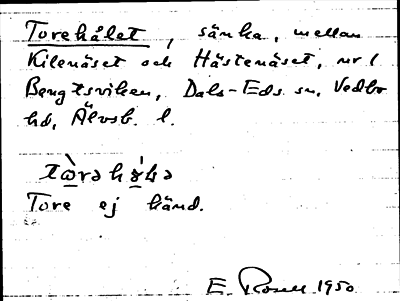 Torehålet, sänka, mellan
Kilenäset och Hästenäset, nr 1
Bengtsviken, Dals-Eds sn, Vedbo
hd, Älvsb. l.
Tore ej känd.
E. Rosell 1950